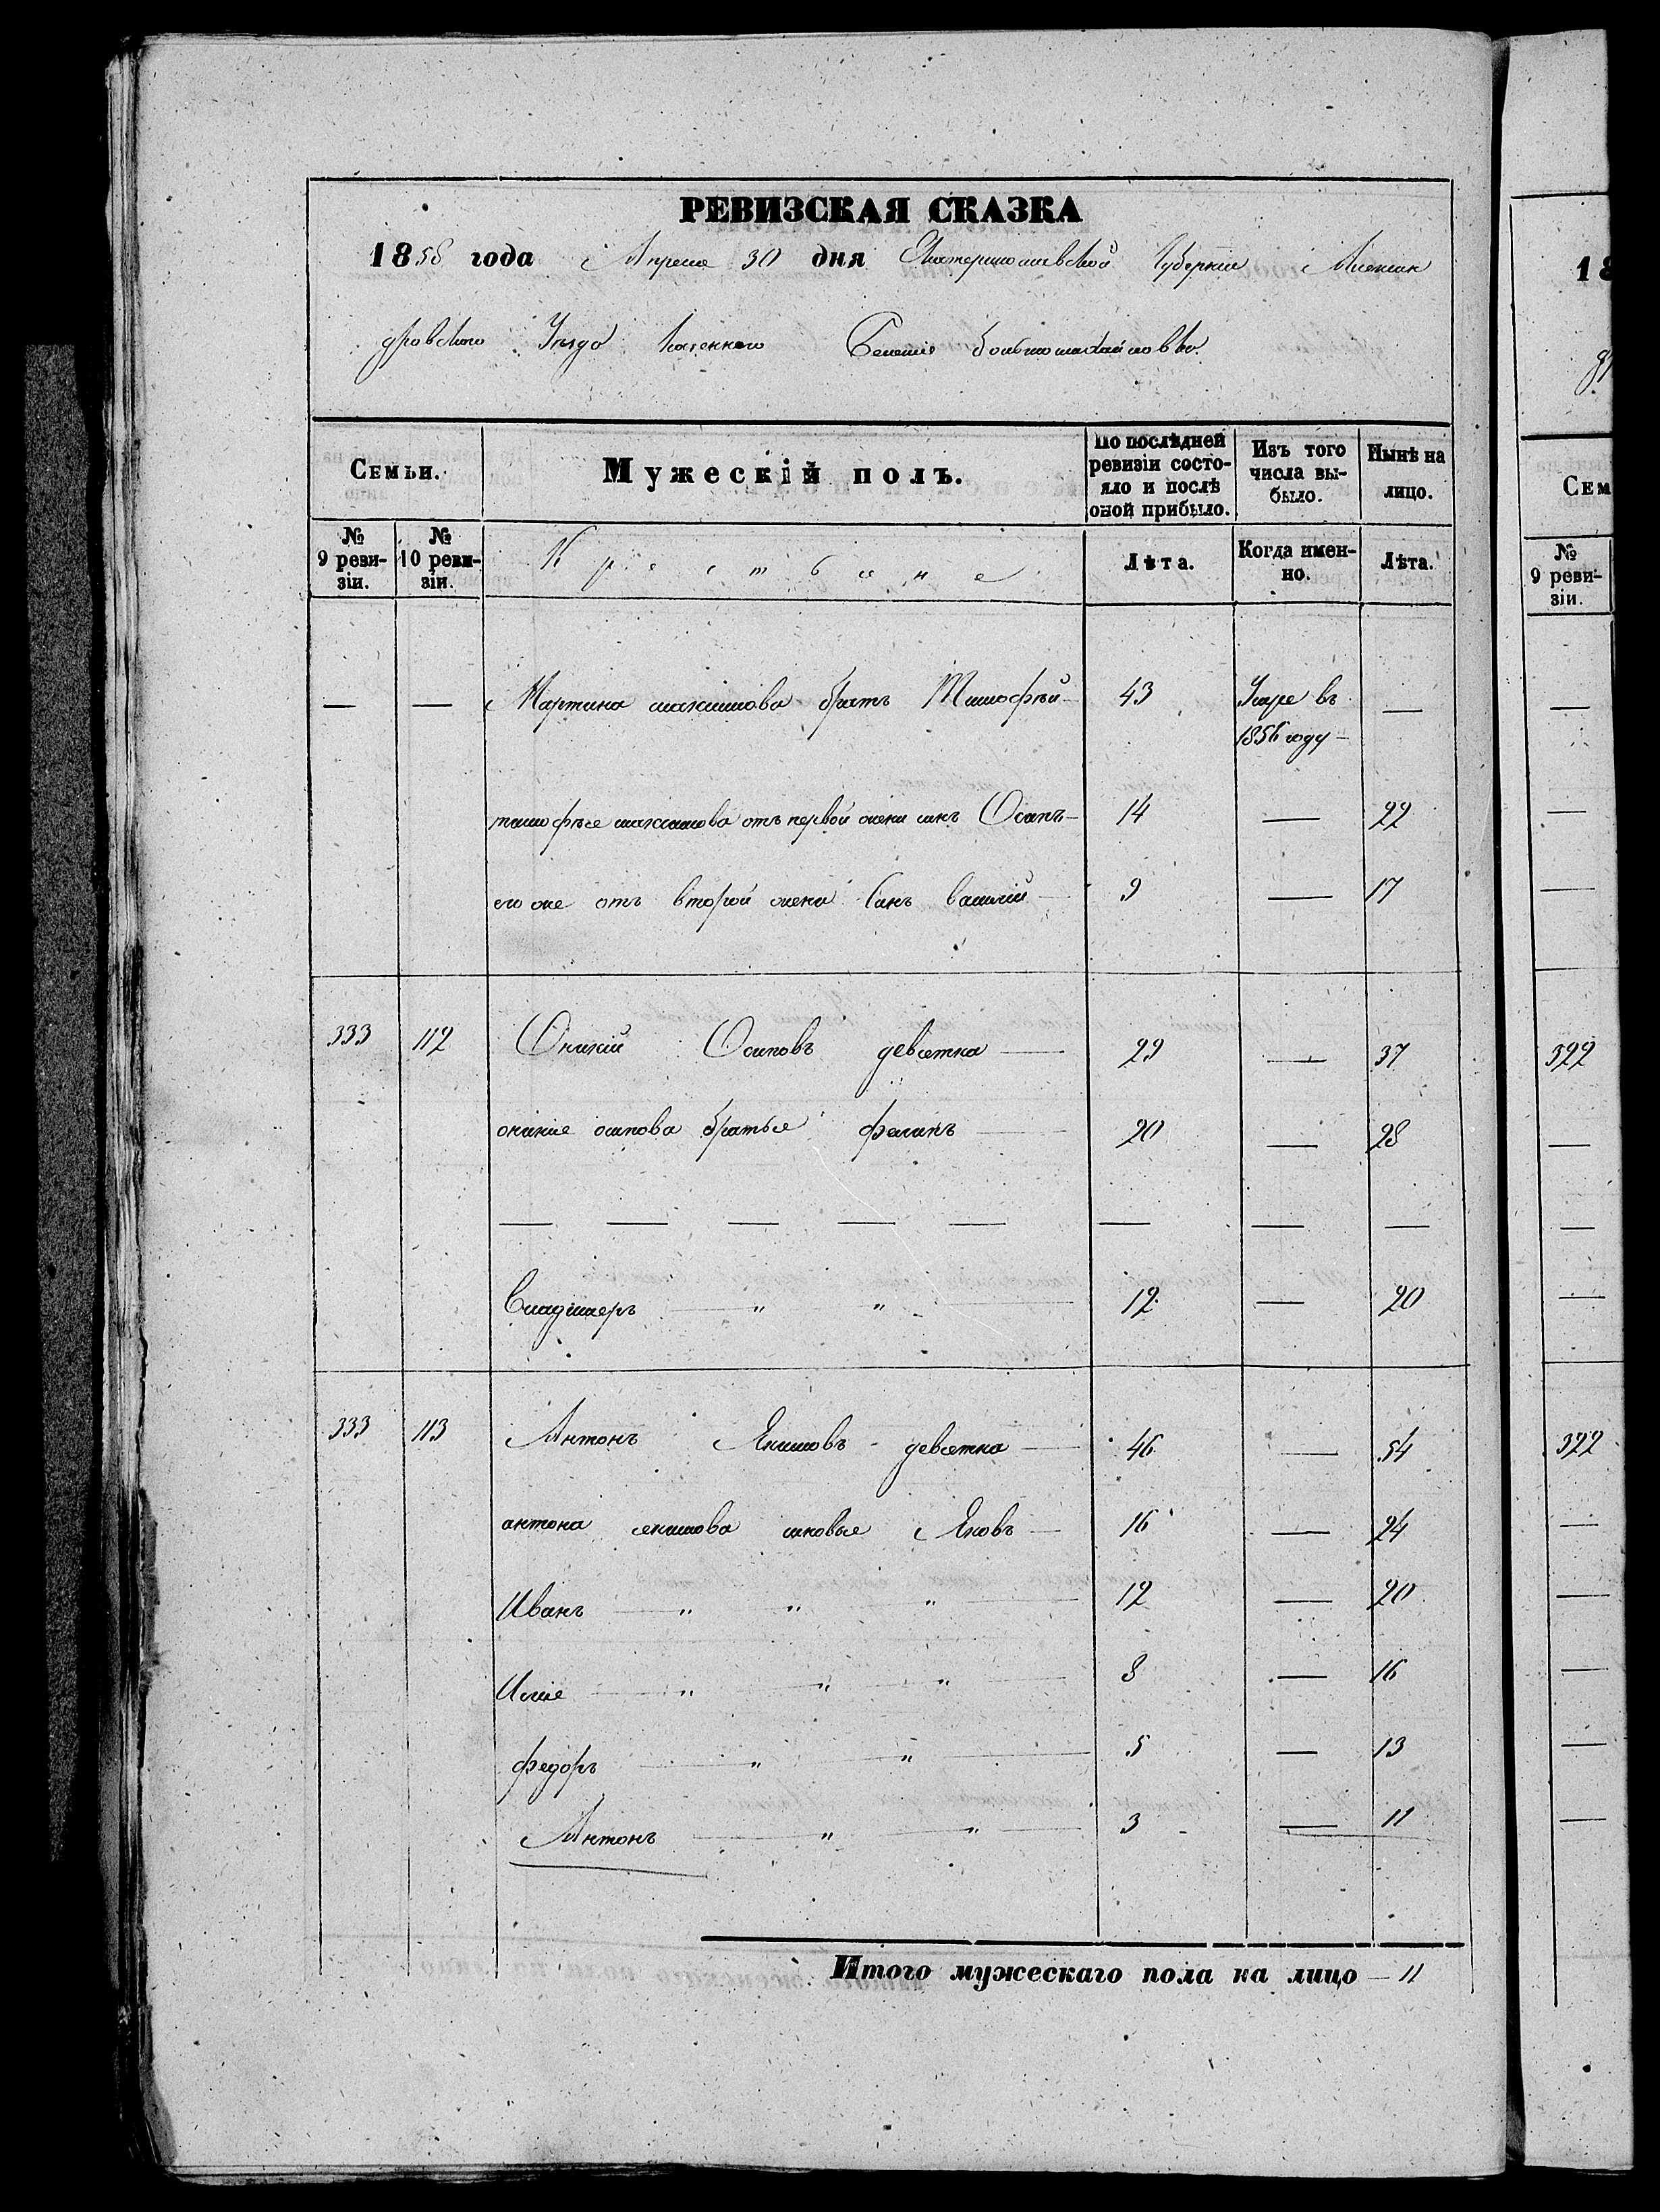 РЕВИЗСКАЯ СКАЗКА
1858 года Апреля 30 дня Екатеринославской Губернии Алексан
дровского Уезда Казенного Селения Большомихайловки.
Семьи.
Мужескій полъ.
По послѣдней ревизіи состояло и послѣ оной прибыло.
Изъ того числа выбыло.
Нынѣ на лицо.
№ 9 ревизіи.
№ 10 ревизіи.
Крестьяне
Лѣта.
Когда именно.
Лѣта.
— — Мартина максимова братъ Тимофѣй — 43 Умре въ 1856 году — —
тимофѣя максимова отъ первой жены синъ Осипъ — 14 — 22
его же отъ второй жены Синъ василий — 9 — 17
333 112 Оникий Осиповъ девятка — 29 — 37
оникия осипова братья филипъ — 20 — 28
— — — — — — — —
Владимеръ — " " — 12 — 20
333 113 Антонъ Якимовъ девятка — 46 — 54
антона якимова сыновья Яковъ — 16 — 24
Иванъ — " " " — 12 — 20
Илия — " " " — 8 — 16
федоръ — " " — 5 — 13
Антонъ — " " — 3 — 11
Итого мужескаго пола на лицо — 11
18
др
Сем
№ 9 ревизіи.
—
—
—
322
—
—
—
322
—
—
—
—
—